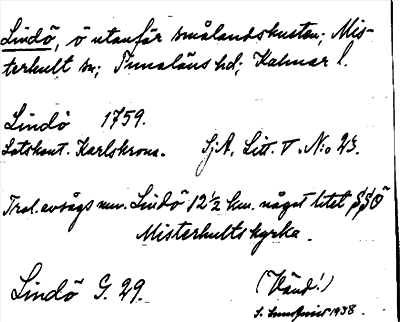 Lindö, ö utanför smålandskusten; Mis-
terhult sn; Tunaläns hd; Kalmar l.
Lindö 1759.
Lotskont. Karlskrona. SjA, Litt. V. N:o 23.
Trol. avsågs nuv. Lindö 12½ km. något litet SSÖ
Misterhults kyrka.
Lindö G. 29.
(Vänd!)
S. Lundqvist 1938.